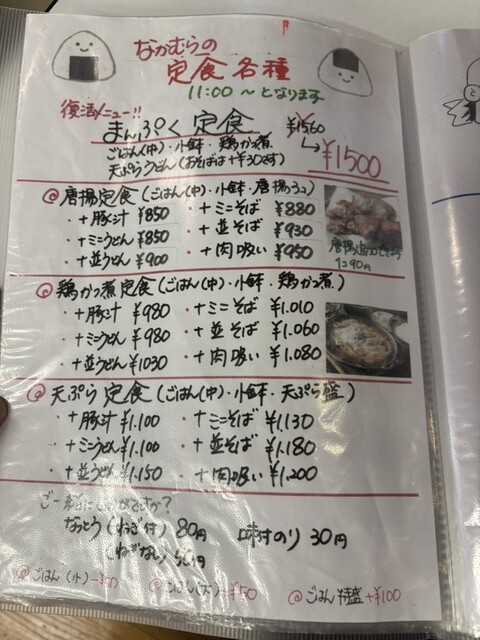 なかむらの
定食各種
11:00 〜となります
復活メニュー!!
まんぷく定食 ¥1560
ごはん(中)・小鉢・鶏かつ煮 ¥1500
天ぷらうどん(おそばは+¥30です)
@唐揚定食(ごはん(中)・小鉢・唐揚3コ)
・+豚汁 ¥850 ・+ミニそば ¥880
・+ミニうどん ¥850 ・+並そば ¥930
・+並うどん ¥900 ・+肉吸い ¥950
1コ90円
@鶏かつ煮定食(ごはん(中)・小鉢・鶏かつ煮)
・+豚汁 ¥980 ・+ミニそば ¥1.010
・+ミニうどん ¥980 ・+並そば ¥1.060
・+並うどん ¥1030 ・+肉吸い ¥1.080
@天ぷら定食(ごはん(中)・小鉢・天ぷら盛)
・+豚汁 ¥1.100 ・+ミニそば ¥1.130
・+ミニうどん ¥1.100 ・+並そば ¥1.180
・+並うどん ¥1.150 ・+肉吸い ¥1.200
ご一緒にいかがですか?
なっとう(ねぎ付) 80円 味付のり 30円
(ねぎなし)
@ごはん(小) @ごはん(大)+¥50 @ごはん特盛+¥100